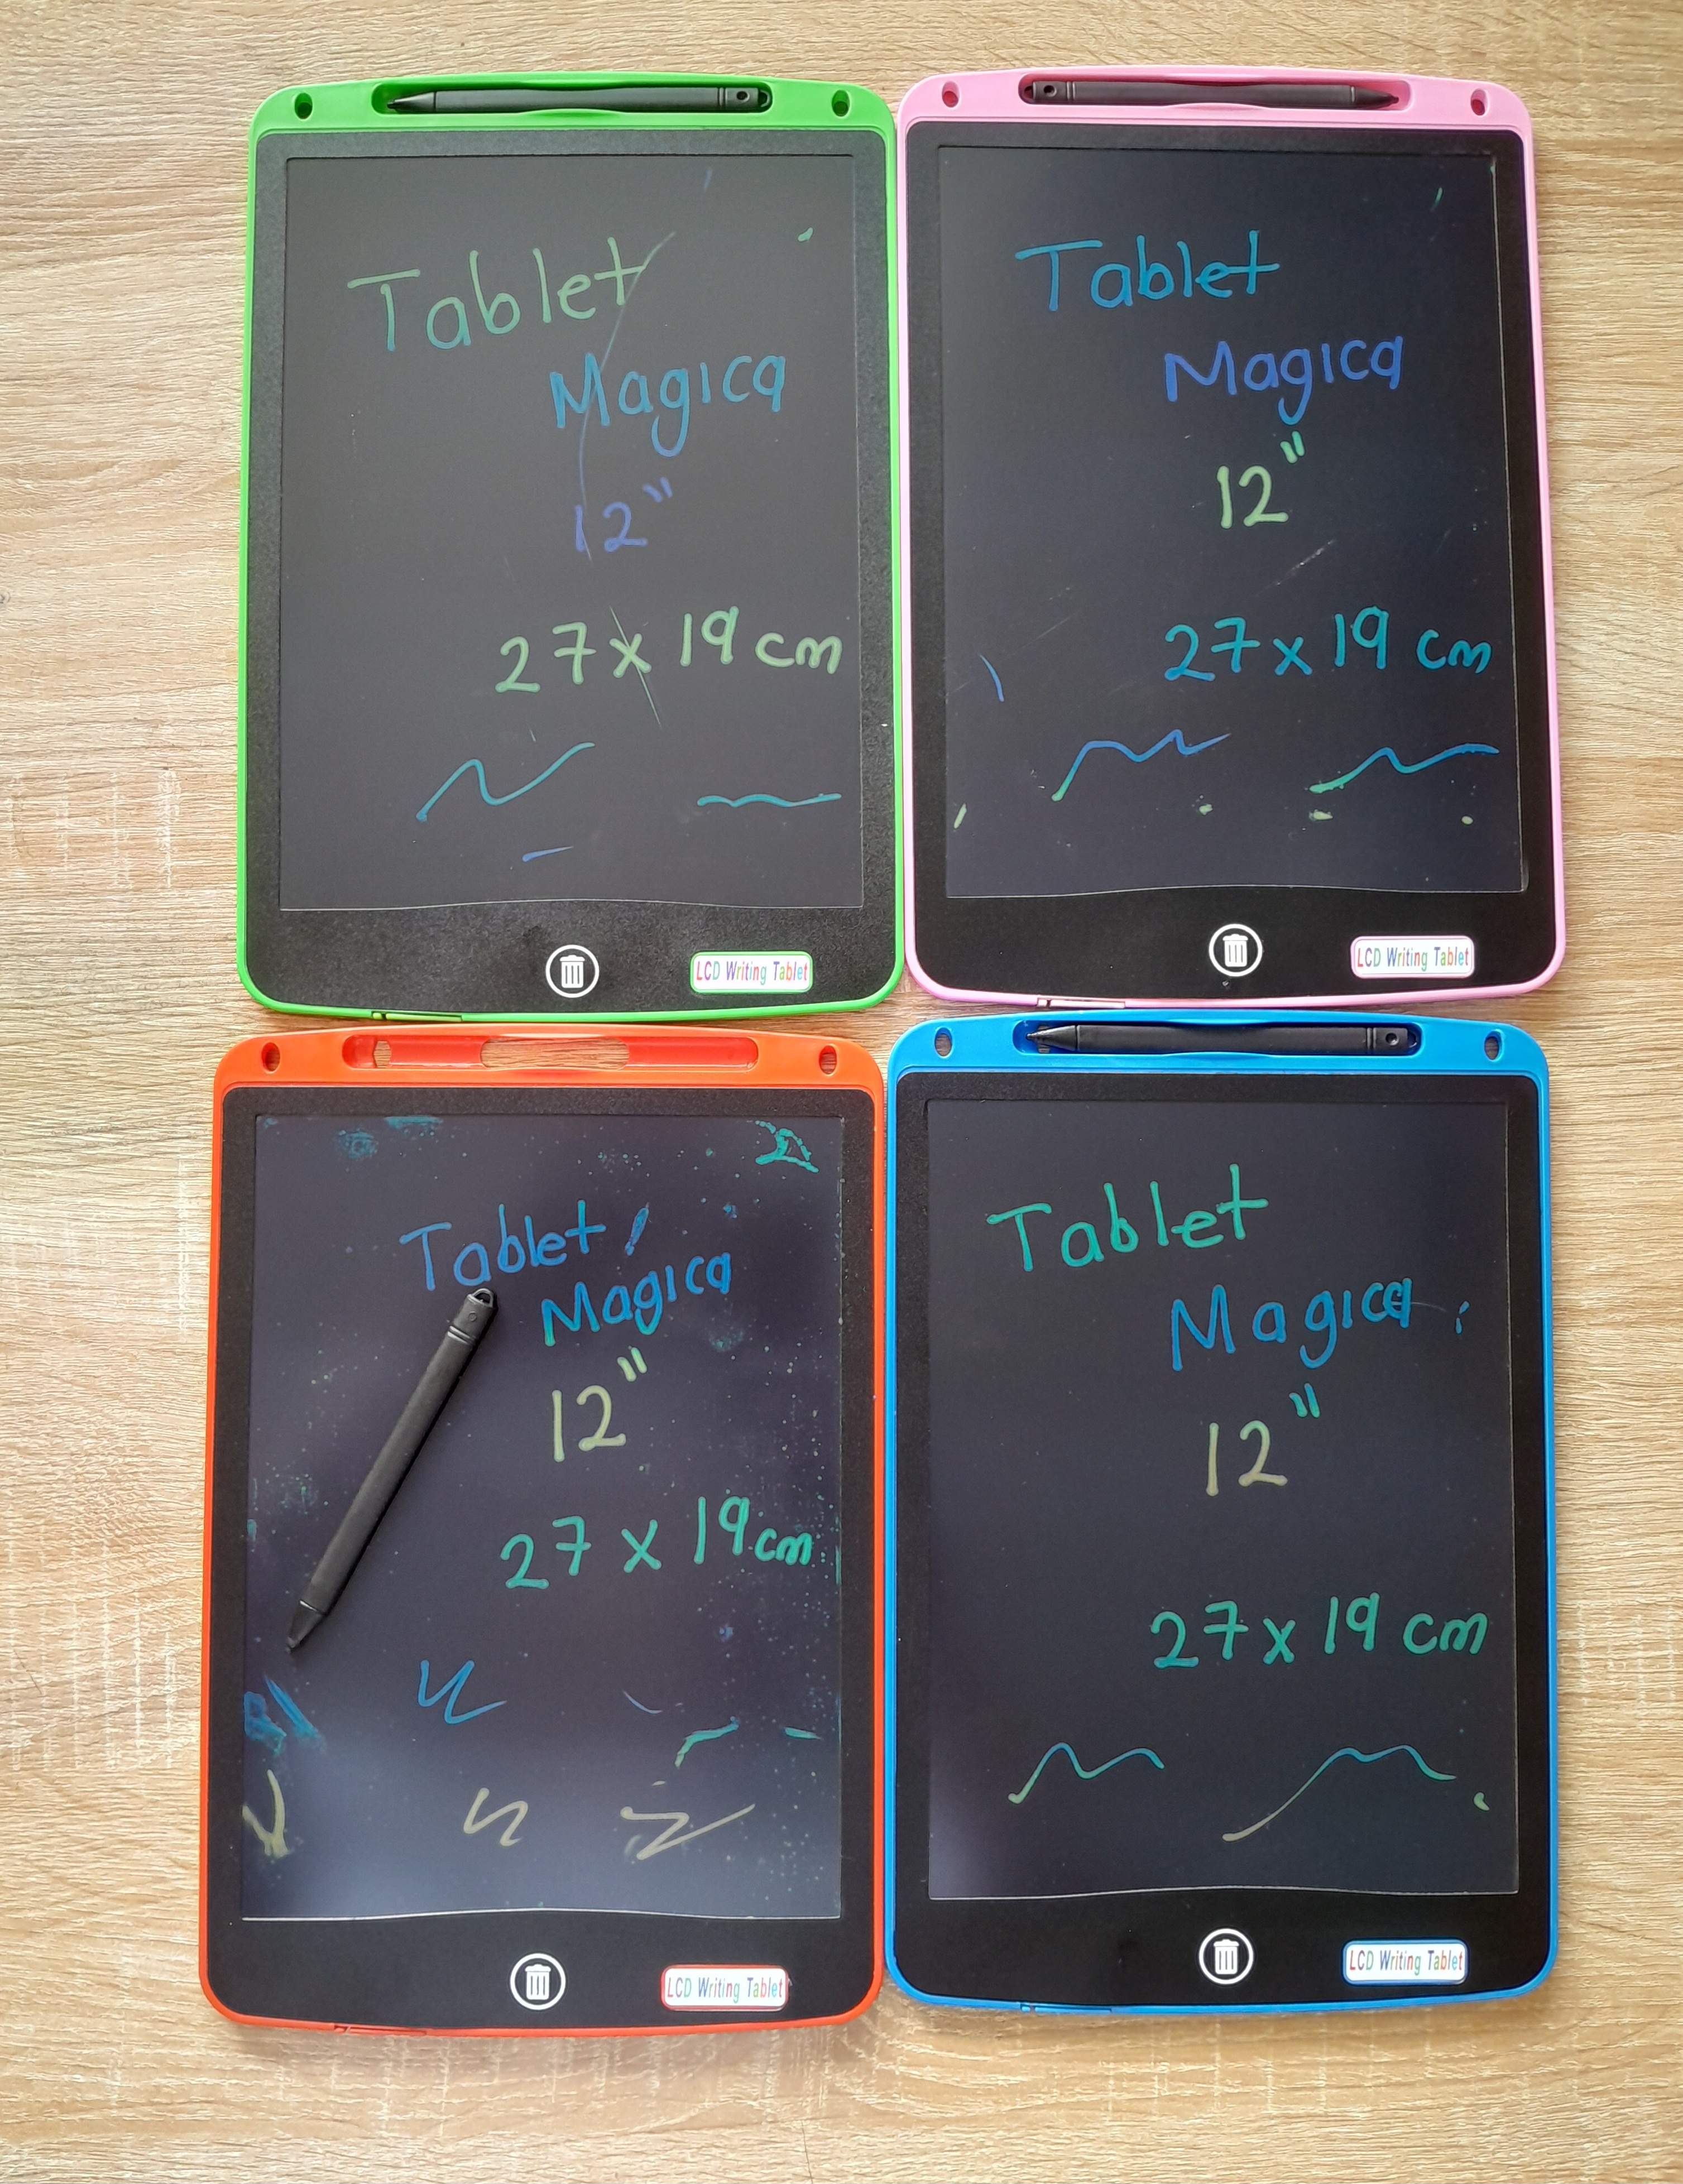 Tablet
Magica
12"
27 x 19 cm
LCD Writing Tablet
Tablet
Magica
12"
27 x 19 cm
LCD Writing Tablet
Tablet
Magica
12"
27 x 19 cm
LCD Writing Tablet
Tablet
Magica
12"
27 x 19 cm
LCD Writing Tablet